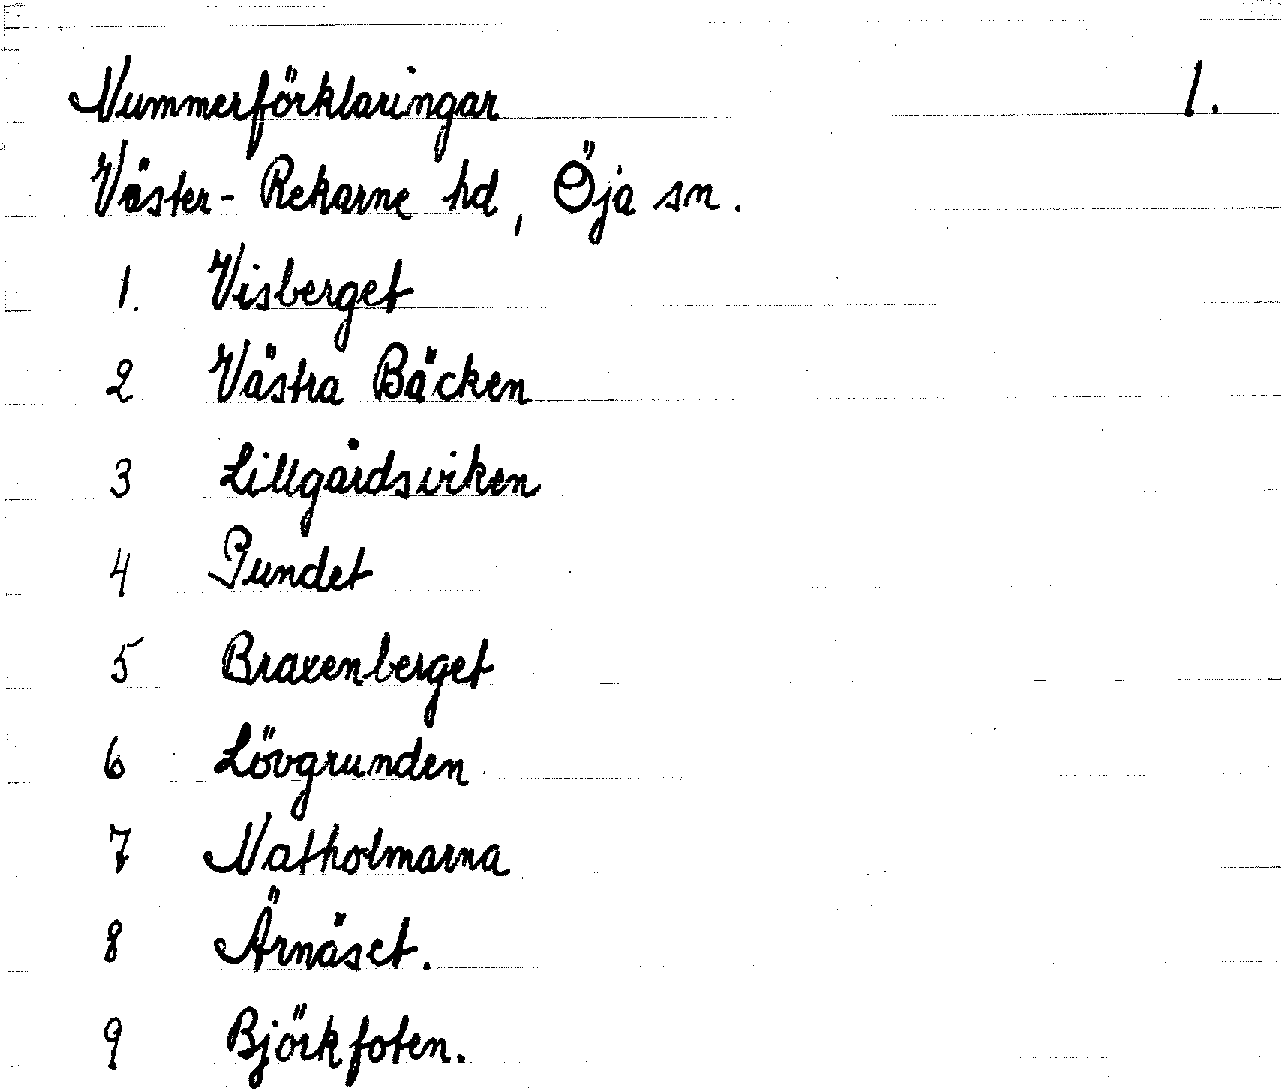 Nummerförklaringar 1.
Väster-Rekarne hd, Öja sn.
1. Visberget
2 Västra Bäcken
3 Lillgårdsviken
4 Pundet
5 Braxenberget
6 Lövgrunden
7 Natholmarna
8 Ärnäset.
9 Björkfoten.